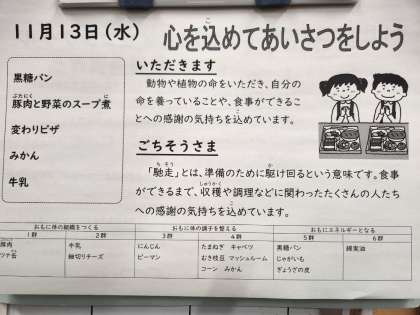 11月13日（水）
心を込めてあいさつをしよう
黒糖パン
豚肉と野菜のスープ煮
変わりピザ
みかん
牛乳
いただきます
動物や植物の命をいただき、自分の
命を養っていることや、食事ができるこ
とへの感謝の気持ちを込めています。
ごちそうさま
「馳走」とは、準備のために駆け回るという意味です。食事
ができるまで、収穫や調理などに関わったたくさんの人たち
への感謝の気持ちを込めています。
おもに体の組織をつくる おもに体の調子を整える おもにエネルギーとなる
1群 2群 3群 4群 5群 6群
豚肉 牛乳 にんじん たまねぎ キャベツ 黒糖パン 綿実油
ツナ缶 細切りチーズ ピーマン むき枝豆 マッシュルーム じゃがいも
コーン みかん ぎょうざの皮